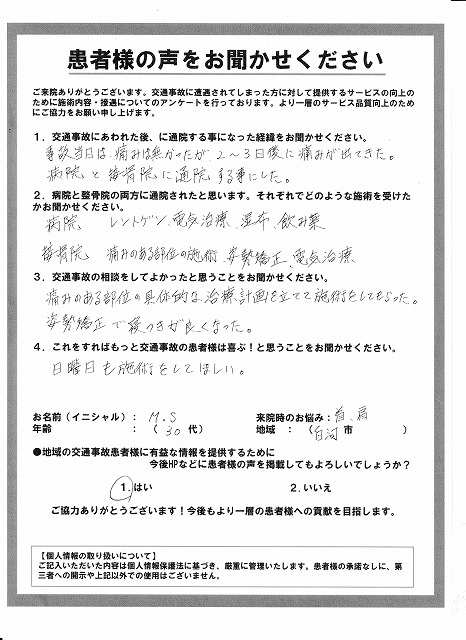 患者様の声をお聞かせください
ご来院ありがとうございます。交通事故に遭遇されてしまった方に対して提供するサービスの向上の
ために施術内容・接遇についてのアンケートを行っております。より一層のサービス品質向上のため
にご協力をお願い申し上げます。
1．交通事故にあわれた後、に通院する事になった経緯をお聞かせください。
事故当日は、痛みは無かったが、2～3日後に痛みが出てきた。
病院と接骨院に通院する事にした。
2．病院と整骨院の両方に通院されたと思います。それぞれでどのような施術を受けた
かお聞かせください。
病院 レントゲン、電気治療、湿布、飲み薬
接骨院 痛みのある部位の施術、姿勢矯正、電気治療
3．交通事故の相談をしてよかったと思うことをお聞かせください。
痛みのある部位の具体的な治療計画を立てて施術をしてもらった。
姿勢矯正で寝つきが良くなった。
4．これをすればもっと交通事故の患者様は喜ぶ！と思うことをお聞かせください。
日曜日も施術をしてほしい。
お名前（イニシャル）：M.S 来院時のお悩み：首、肩
年齢 ：（ 30 代） 地域 ：（白河市 ）
●地域の交通事故患者様に有益な情報を提供するために
今後HPなどに患者様の声を掲載してもよろしいでしょうか？
1.はい 2.いいえ
ご協力ありがとうございます！今後もより一層の患者様への貢献を目指します。
【個人情報の取り扱いについて】
ご記入いただいた内容は個人情報保護法に基づき、厳重に管理いたします。患者様の承諾なしに、第
三者への開示や上記以外での使用はございません。